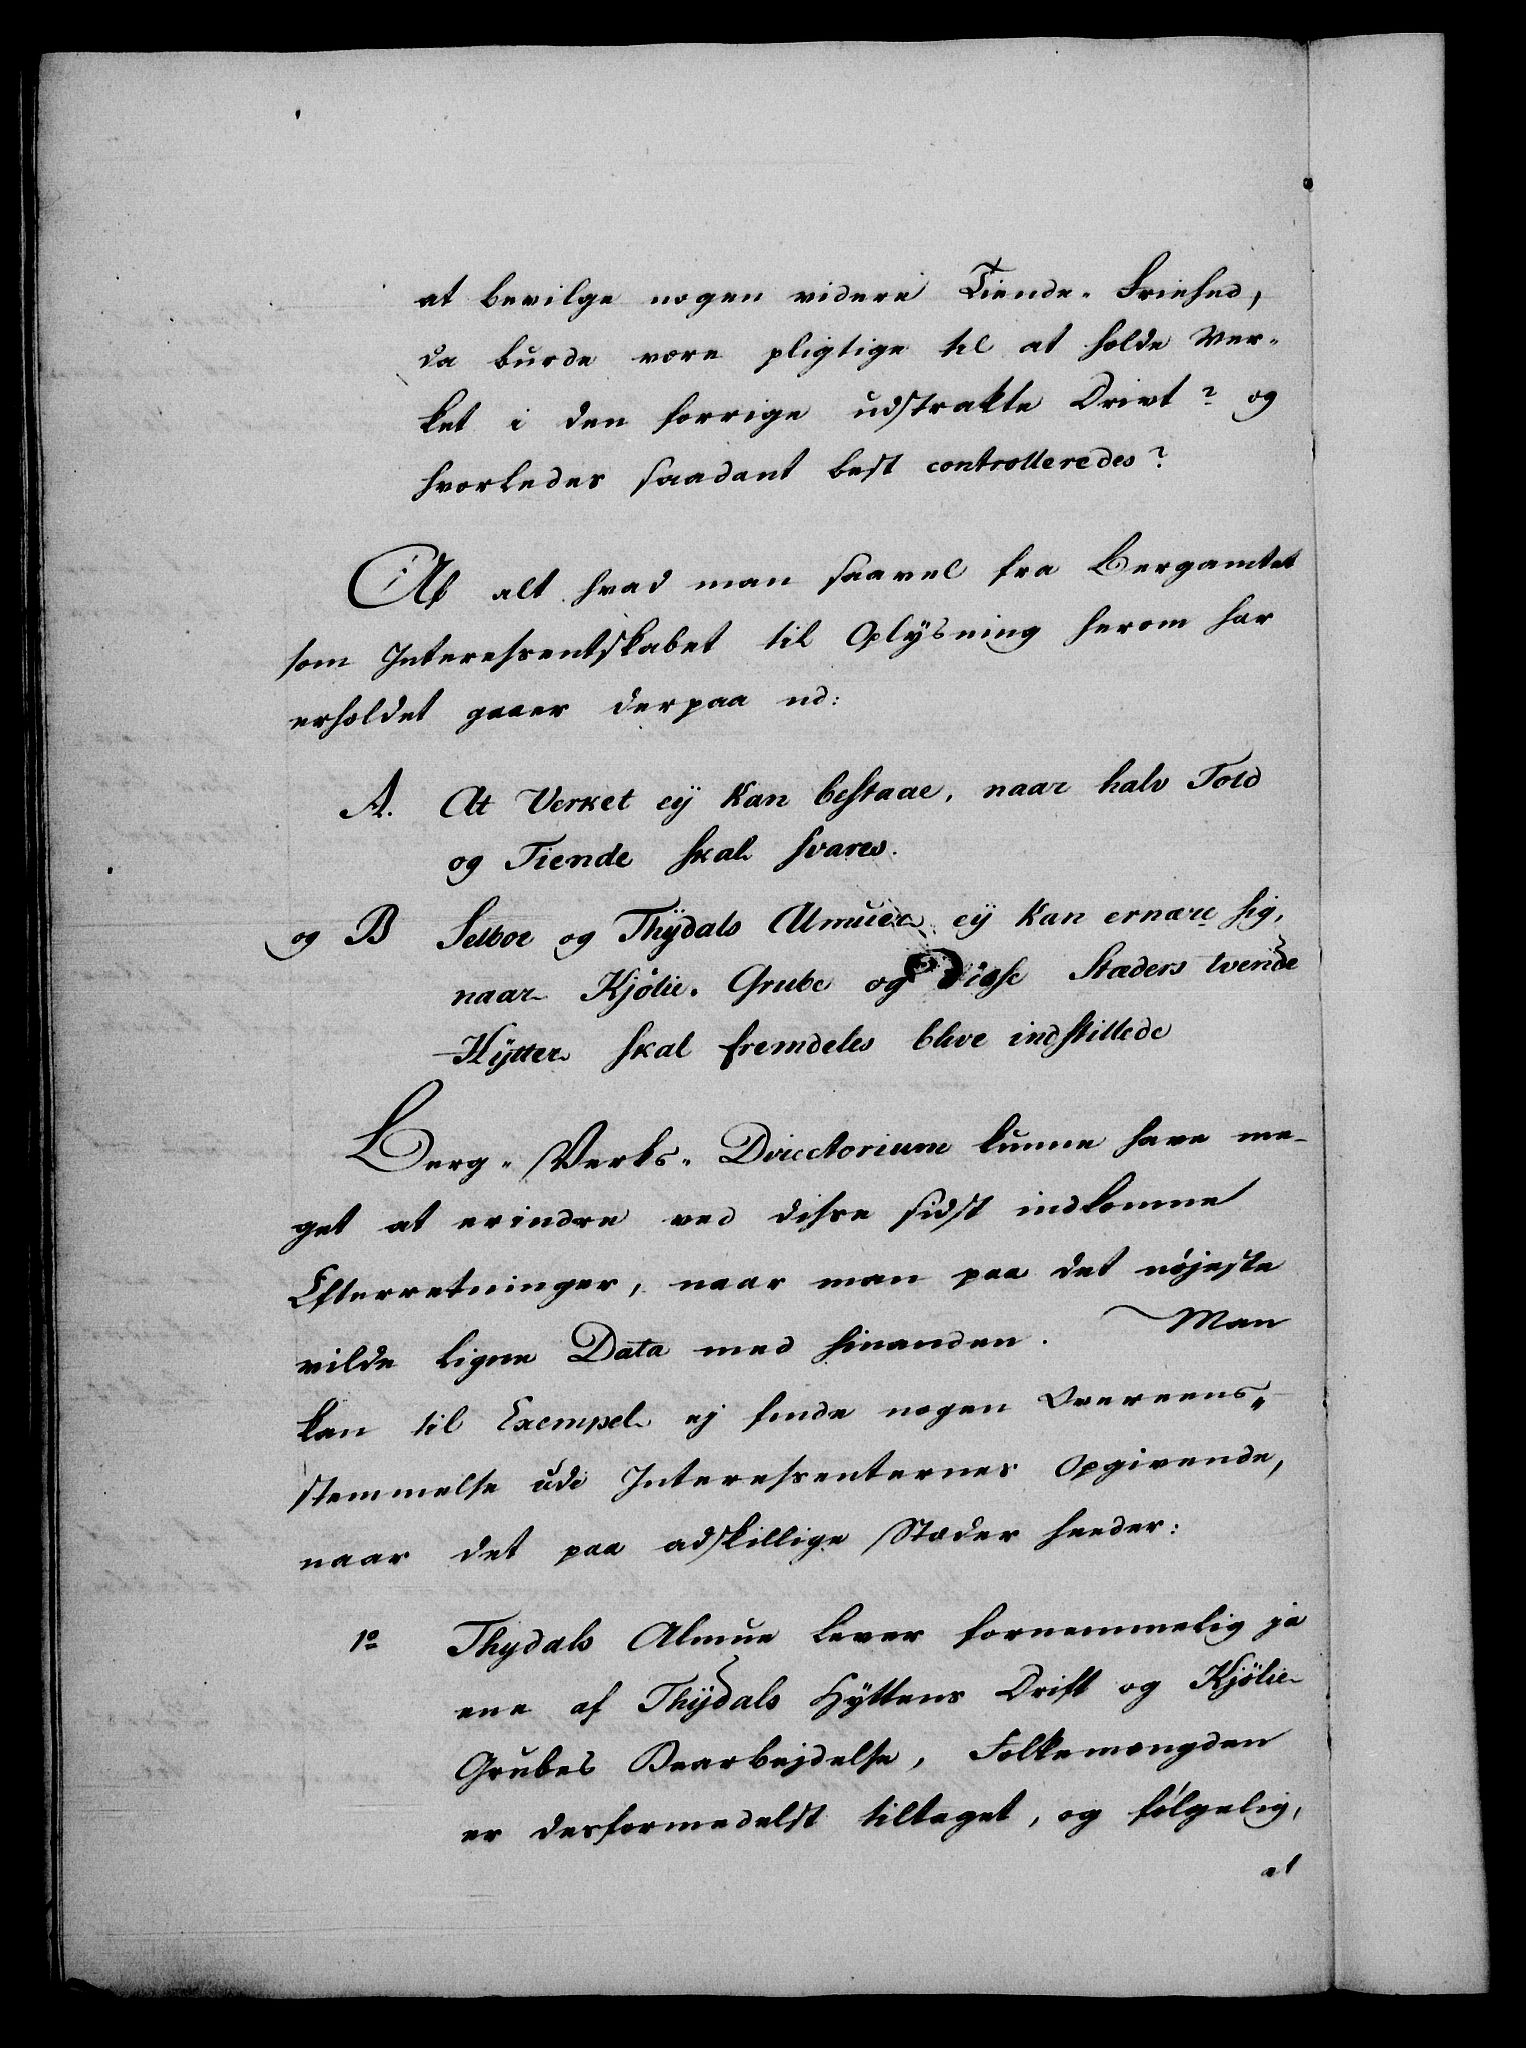 at bevilge nogen videre Tiende-Friehed,
da burde være pligtige til at holde Ver-
ket i den forrige udstrakte Drivt? og
hvorledes saadant best controlleredes?
Af alt hvad man saavel fra Bergamtet
som Interessentskabet til Oplÿsning herom har
erholdet gaaer derpaa ud:
A. At Verket eÿ kan bestaae, naar halv Told
og Tiende skal svares.
og B Selboe og Thÿdals Almuer eÿ kan ernære sig,
naar Kjølie-Grube og disse Stæders tvende
Hÿtter skal fremdeles blive indstillede
Berg-Verks-Directorium kunne have me-
get at erindre ved disse sidst indkomne
Efterretninger, naar man paa det nøjeste
vilde ligne Data med hinanden. Man
kan til Exempel ej finde nogen Overeens-
stemmelse udi Interessenternes Opgivende,
naar det paa adskillige Stæder heeder:
1º Thydals Almue lever fornemmelig ja
ene af Thÿdals Hÿttens Drift og Kjölie
Grubes Bearbejdelse, Folkemængden
er desformedelst tiltaget, og følgelig,
at